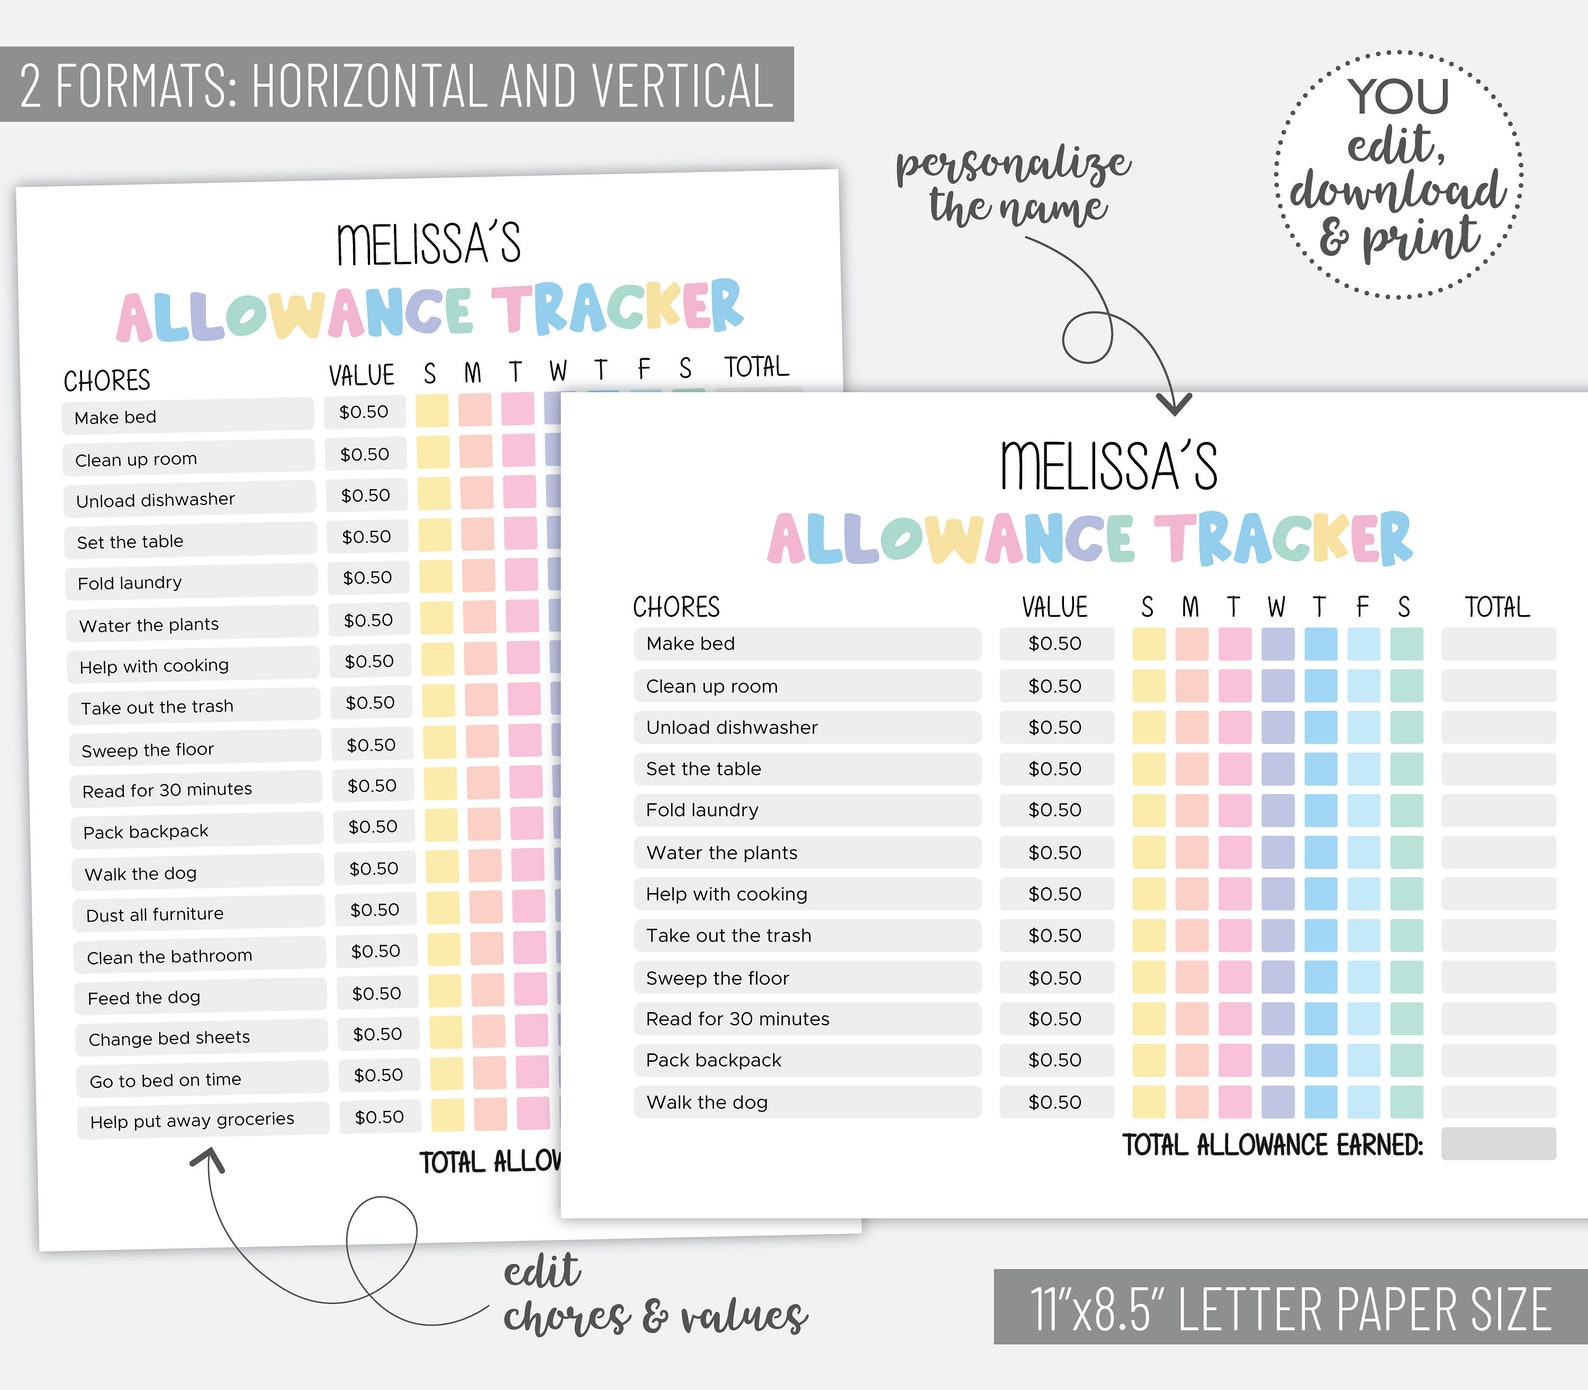 2 FORMATS: HORIZONTAL AND VERTICAL
YOU
edit,
download
& print
personalize
the name
MELISSA'S
ALLOWANCE TRACKER
CHORES VALUE S M T W T F S TOTAL
Make bed $0.50
Clean up room $0.50
Unload dishwasher $0.50
Set the table $0.50
Fold laundry $0.50
Water the plants $0.50
Help with cooking $0.50
Take out the trash $0.50
Sweep the floor $0.50
Read for 30 minutes $0.50
Pack backpack $0.50
Walk the dog $0.50
Dust all furniture $0.50
Clean the bathroom $0.50
Feed the dog $0.50
Change bed sheets $0.50
Go to bed on time $0.50
Help put away groceries $0.50
TOTAL ALLOW
MELISSA'S
ALLOWANCE TRACKER
CHORES VALUE S M T W T F S TOTAL
Make bed $0.50
Clean up room $0.50
Unload dishwasher $0.50
Set the table $0.50
Fold laundry $0.50
Water the plants $0.50
Help with cooking $0.50
Take out the trash $0.50
Sweep the floor $0.50
Read for 30 minutes $0.50
Pack backpack $0.50
Walk the dog $0.50
TOTAL ALLOWANCE EARNED:
edit
chores & values
11"x8.5" LETTER PAPER SIZE